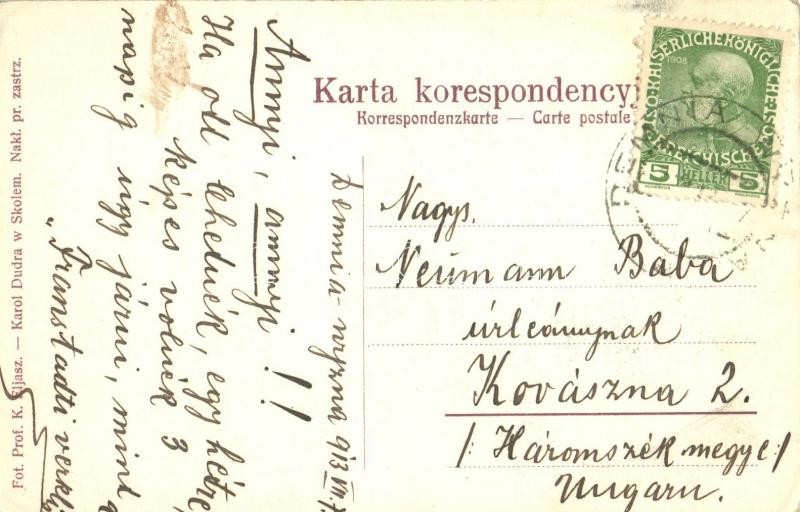 Karta korespondencyj
Korrespondenzkarte — Carte postale
KAISERLICHEKÖNIGLICHE
1908
5 HELLER 5
DEMNIA
Nagys.
Neumann Baba
úrleánynak
Kovászna 2.
/: Háromszék megye :/
Ungarn.
Demnia-wyzna 913
Annyi, annyi!!
Ha ott lehetnék, egy hétre,
képes volnék 3
napig úgy járni, mint
"Franstadti verkli
Fot. Prof. K. Eljasz. — Karol Dudra w Skolem. Nakł. pr. zastrz.